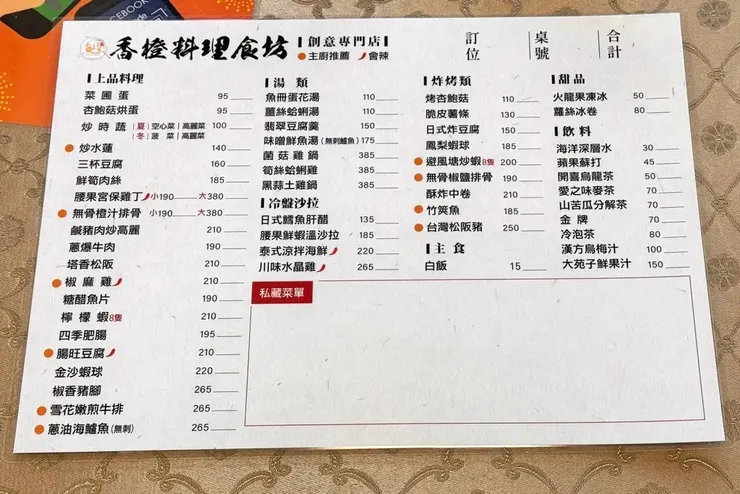 FACEBOOK
香橙料理食坊
創意專門店
主廚推薦 會辣
訂位
桌號
合計
上品料理
菜圃蛋 95
杏鮑菇烘蛋 95
炒時蔬 夏 空心菜 高麗菜 100
冬 菠菜 高麗菜
炒水蓮 140
三杯豆腐 160
鮮筍肉絲 185
腰果宮保雞丁 小190 大380
無骨橙汁排骨 小190 大380
鹹豬肉炒高麗 210
蔥爆牛肉 210
塔香松阪 210
椒麻雞 210
糖醋魚片 190
檸檬蝦8隻 210
四季肥腸 195
腸旺豆腐 210
金沙蝦球 220
椒香豬腳 265
雪花嫩煎牛排 265
蔥油海鱸魚(無刺) 265
湯類
魚冊蛋花湯 110
薑絲蛤蜊湯 110
翡翠豆腐羹 150
味噌鮮魚湯(無刺鱸魚) 175
菌菇雞鍋 350
筍絲蛤蜊雞 350
黑蒜土雞鍋 350
冷盤沙拉
日式鱈魚肝醋 135
腰果鮮蝦溫沙拉 185
泰式涼拌海鮮 220
川味水晶雞 265
炸烤類
烤杏鮑菇 110
脆皮薯條 130
日式炸豆腐 150
鳳梨蝦球 185
避風塘炒蝦8隻 200
無骨椒鹽排骨 190
酥炸中卷 220
竹筴魚 185
台灣松阪豬 250
主食
白飯 15
甜品
火龍果凍冰 50
蘿絲冰卷 80
飲料
海洋深層水 30
蘋果蘇打 45
開喜烏龍茶 50
愛之味麥茶 50
山苦瓜分解茶 70
金牌 70
冷泡茶 80
漢方烏梅汁 100
大苑子鮮果汁 150
私藏菜單